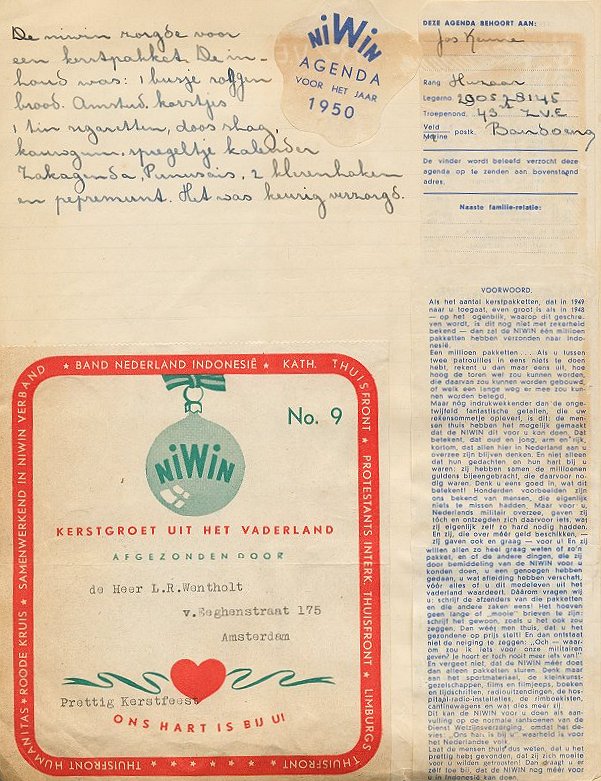 De niwin zorgde voor
een kerstpakket. De in-
houd was: 1 busje roggen
brood. Amstud. korstjes
1 tin sigaretten, doos shag,
kauwgum, spiegeltje kalender
Zakagenda, Punusais, 2 klerenhaken
en pepermunt. Het was keurig verzorgd.
NIWIN
AGENDA
VOOR HET JAAR
1950
DEZE AGENDA BEHOORT AAN:
Jos
Rang Huzaar
Legerno. 290528145
Troepenond. 43ste Z.V.E
Veld
Marine postk. Bandoeng
De vinder wordt beleefd verzocht deze
agenda op te zenden aan bovenstaand
adres.
Naaste familie-relatie:
VOORWOORD.
Als het aantal kerstpakketten, dat in 1949
naar u toegaat, even groot is als in 1948
— op het ogenblik, waarop dit geschre-
ven wordt, is dit nog niet met zekerheid
bekend — dan zal de NIWIN één millioen
pakketten hebben verzonden naar Indo-
nesië.
Een millioen pakketten . . . Als u tussen
twee patrouilles in eens niets te doen
hebt, rekent u dan maar eens uit, hoe
hoog de toren wel zou kunnen worden,
die daarvan zou kunnen worden gebouwd,
of welk een lange weg er mee zou kun-
nen worden belegd.
Maar nóg indrukwekkender dan de onge-
twijfeld fantastische getallen, die uw
rekensommetje oplevert, is dit: de men-
sen thuis hebben het mogelijk gemaakt
dat de NIWIN dit voor u kon doen. Dat
betekent, dat oud en jong, arm en rijk,
kortom, dat allen hier in Nederland aan u
overzee zijn blijven denken. En niet alleen
dat hun gedachten en hun hart bij u
waren; zij hebben samen de millioenen
guldens bijeengebracht, die daarvoor no-
dig waren. Denk u eens goed in, wat dit
betekent! Honderden voorbeelden zijn
ons bekend van mensen, die eigenlijk
niets te missen hadden. Maar voor u,
Nederlands militair overzee, geven zij
tóch en ontzegden zich daarvoor iets, wat
zij eigenlijk zelf zo hard nodig hadden.
En zij, die over méér geld beschikken, —
zij gaven ook en graag — voor u! En zij
willen allen zo heel graag weten of zo'n
pakket, en of de andere dingen, die zij
door bemiddeling van de NIWIN voor u
konden doen, u een genoegen hebben
gedaan, u wat afleiding hebben verschaft,
vóór alles of u dit medeleven uit het
vaderland waardeert. Dáárom vragen wij
u: schrijf de afzenders van die pakketten
en die andere zaken eens! Het hoeven
geen lange of „mooie" brieven te zijn:
schrijf het gewoon, zoals u het ook zou
zeggen. Dan weet men thuis, dat u het
gezondene op prijs stelt! En dan ontstaat
niet de neiging te zeggen: „Och — waar-
om zou ik iets voor onze militairen
geven? Je hoort er toch nooit meer iets van!"
En vergeet niet, dat de NIWIN méér doet
dan alleen pakketten sturen. Denk maar
aan het sportmateriaal, de kleinkunst-
gezelschappen, films en filmjeeps, boeken
en tijdschriften, radiouitzendingen, de hos-
pitaal-radio-installaties, de rimboekisten,
cantinewagens en wat dies meer zij.
Dit kan de NIWIN voor u doen als aan-
vulling op de normale rantsoenen van de
Dienst Welzijnsverzorging, omdat het de-
vies: „Ons hart is bij u" waarheid is voor
het Nederlandse volk.
Laat de mensen thuis dus weten, dat u het
prettig hebt gevonden, dat zij zich moeite
voor u wilden getroosten! Dan draagt u er
zelf toe bij, dat de NIWIN nog méér voor
u in Indonesië kan doen.
★ BAND NEDERLAND INDONESIË ★ KATH. THUISFRONT ★ PROTESTANTS INTERK. THUISFRONT ★ LIMBURGS THUISFRONT ★ THUISFRONT HUMANITAS ★ ROODE KRUIS ★ SAMENWERKEND IN NIWIN VERBAND
No. 9
NIWIN
KERSTGROET UIT HET VADERLAND
AFGEZONDEN DOOR
de Heer L.R.Wentholt
v.Eeghenstraat 175
Amsterdam
Prettig Kerstfeest
ONS HART IS BIJ U!